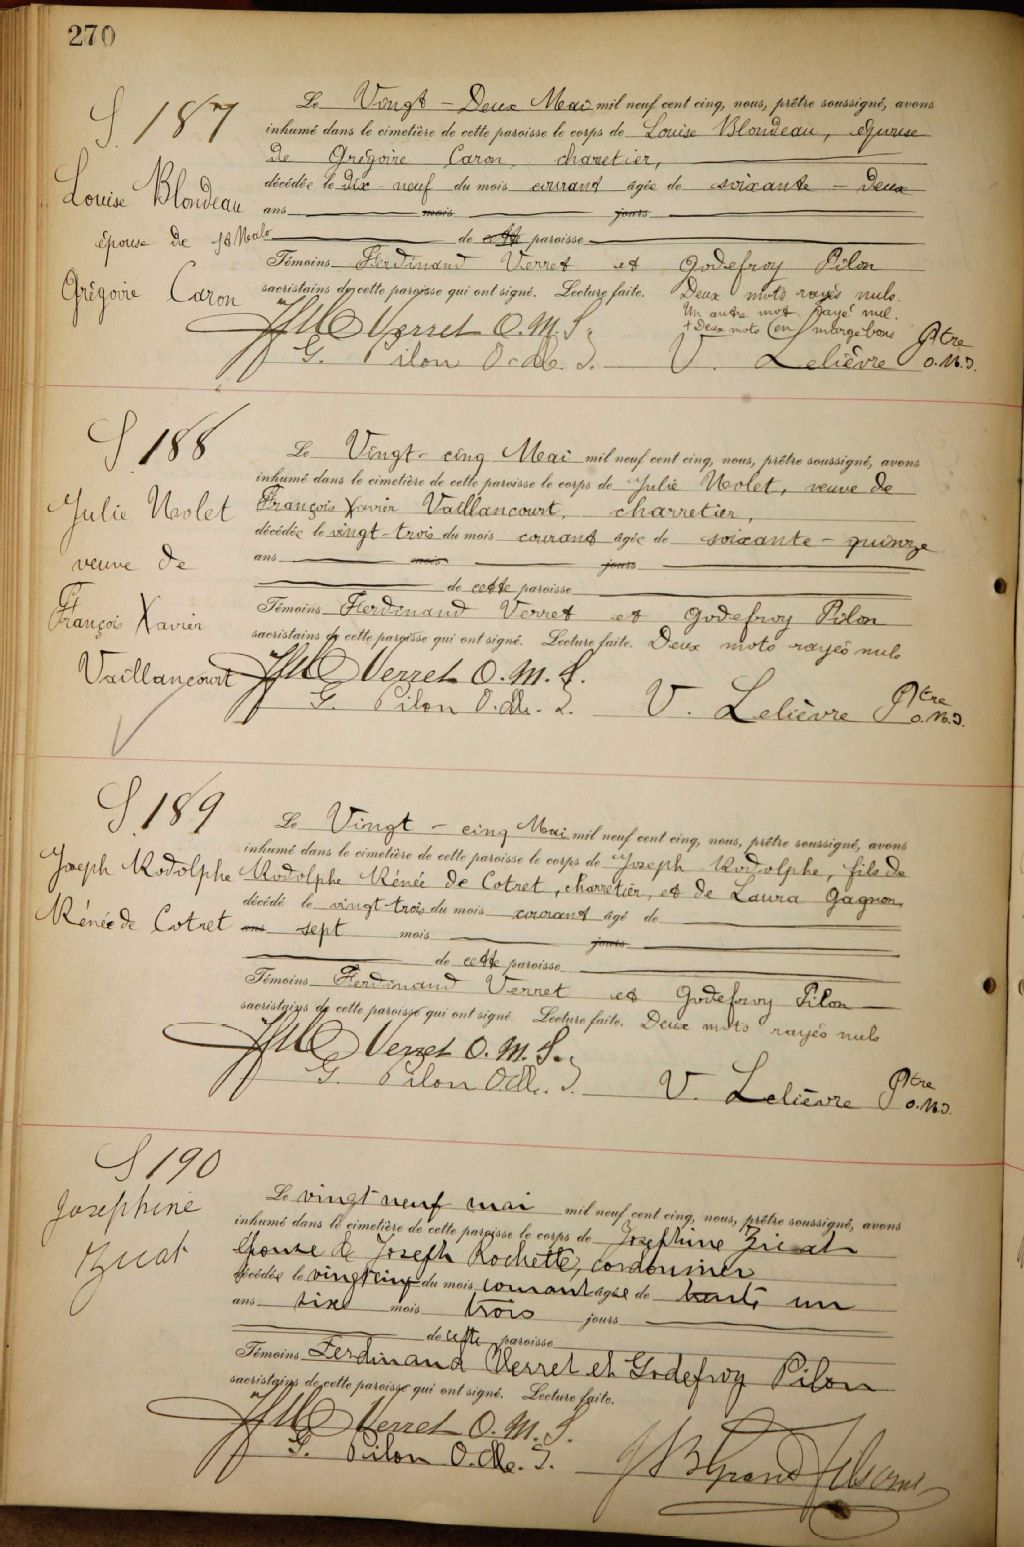 270
S. 187
Louise Blondeau
épouse de St Malo
Grégoire Caron
Le Vingt-Deux Mai mil neuf cent cinq, nous, prêtre soussigné, avons
inhumé dans le cimetière de cette paroisse le corps de Louise Blondeau, épouse
de Grégoire Caron, charretier,
décédée le dix-neuf du mois courant âgée de soixante-Deux
ans mois jours
de cette paroisse
Témoins Ferdinand Verret et Godefroy Pilon
sacristains de cette paroisse qui ont signé. Lecture faite. Deux mots rayés nuls.
Un autre mot rayé nul.
+ Deux mots en marge bons
Verret O.M.I.
G. Pilon O. I. V. Lelièvre Ptre
o.m.i.
S. 188
Julie Nolet
veuve de
François Xavier
Vaillancourt
Le Vingt-cinq Mai mil neuf cent cinq, nous, prêtre soussigné, avons
inhumé dans le cimetière de cette paroisse le corps de Julie Nolet, veuve de
François Xavier Vaillancourt, charretier,
décédée le vingt-trois du mois courant âgée de soixante-quinze
ans mois jours
de cette paroisse
Témoins Ferdinand Verret et Godefroy Pilon
sacristains de cette paroisse qui ont signé. Lecture faite. Deux mots rayés nuls
Verret O.M.I.
G. Pilon O. I. V. Lelièvre Ptre
o.m.i.
S. 189
Joseph Rodolphe
Rénée de Cotret
Le Vingt-cinq Mai mil neuf cent cinq, nous, prêtre soussigné, avons
inhumé dans le cimetière de cette paroisse le corps de Joseph Rodolphe, fils de
Rodolphe Rénée de Cotret, charretier, et de Laura Gagnon,
décédé le vingt-trois du mois courant âgé de
ans sept mois jours
de cette paroisse
Témoins Ferdinand Verret et Godefroy Pilon
sacristains de cette paroisse qui ont signé. Lecture faite. Deux mots rayés nuls
Verret O.M.I.
G. Pilon O. I. V. Lelièvre Ptre
o.m.i.
S 190
Josephine
Zicat
Le vingt neuf mai mil neuf cent cinq, nous, prêtre soussigné, avons
inhumé dans le cimetière de cette paroisse le corps de Josephine Zicat
épouse de Joseph Rochette, cordonnier
décédée le vingt cinq du mois courant âgée de trente un
ans six mois trois jours
de cette paroisse
Témoins Ferdinand Verret et Godefroy Pilon
sacristains de cette paroisse qui ont signé. Lecture faite.
Verret O.M.I.
G. Pilon O. I.